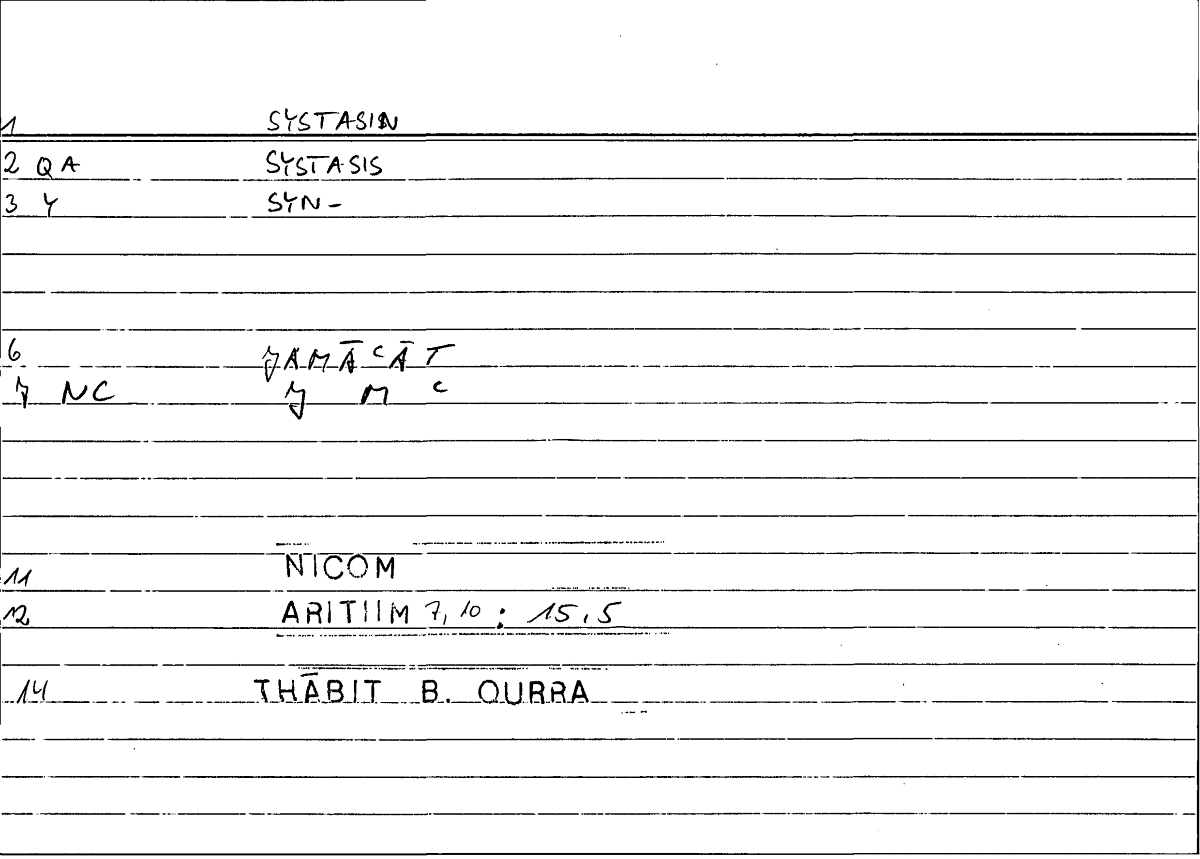 1 SYSTASIN
2 QA SYSTASIS
3 Y SYN-
6 JAMĀCĀT
7 NC J M C
11 NICOM
12 ARITIIM 7, 10 : 15,5
14 THĀBIT B. QURRA